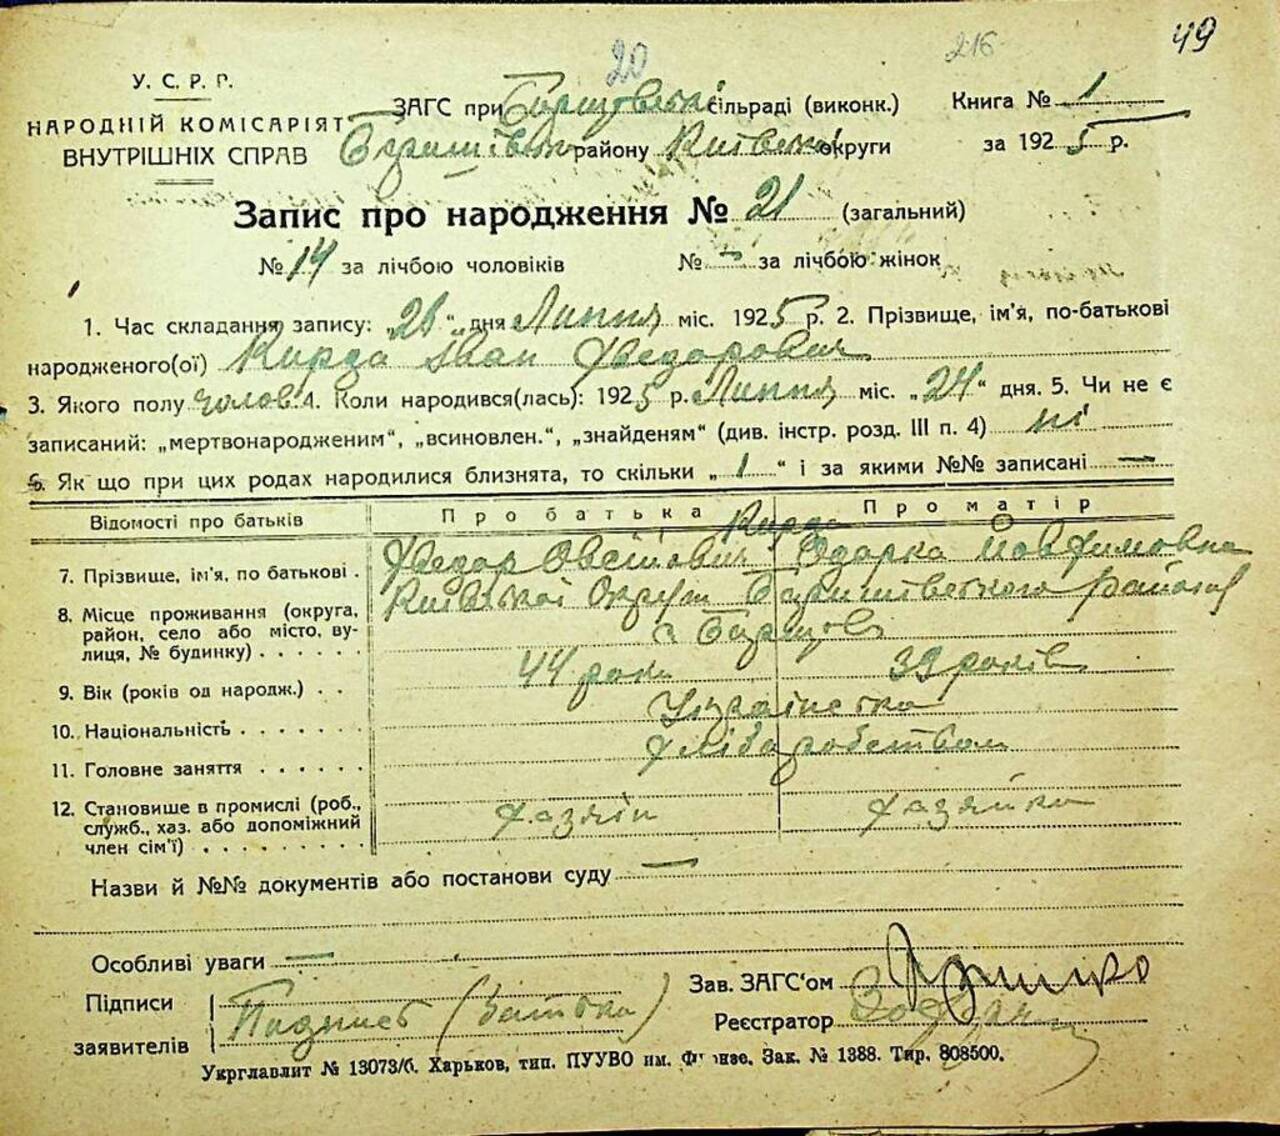 20 216 49
У. С. Р. Р.
НАРОДНІЙ КОМІСАРІЯТ
ВНУТРІШНІХ СПРАВ
ЗАГС при Борщовській сільраді (виконк.)
Баришівськ району Київської округи
Книга № 1
за 1925 р.
Запис про народження № 21 (загальний)
№ 14 за лічбою чоловіків № — за лічбою жінок
1. Час складання запису: „28" дня Липня міс. 1925 р. 2. Прізвище, ім'я, по-батькові
народженого(ої) Кирда Іван Федорович
3. Якого полу чолов 4. Коли народився(лась): 1925 р. Липня міс. „24" дня. 5. Чи не є
записаний: „мертвонародженим", „всиновлен.", „знайденям" (див. інстр. розд. III п. 4) ні
6. Як що при цих родах народилися близнята, то скільки „1" і за якими №№ записані —
Відомості про батьків Про батька Про матір
Кирда
7. Прізвище, ім'я, по батькові . Федор Овсійович Одарка Йовхимовна
8. Місце проживання (округа, Київської Округи Баришівського району
район, село або місто, ву- с Борщов
лиця, № будинку) . . . . . .
9. Вік (років од народж.) . . 44 роки 39 років
10. Національність . . . . . . . Українська
11. Головне заняття . . . . . . Хліборобством
12. Становище в промислі (роб., Хазяїн Хазяйка
служб., хаз. або допоміжний
член сім'ї) . . . . . . . . .
Назви й №№ документів або постанови суду —
Особливі уваги —
Підписи
заявителів
Подпись (батька)
Зав. ЗАГС'ом
Реєстратор
Укрглавлит № 13073/б. Харьков, тип. ПУУВО им. Фрунзе. Зак. № 1388. Тир. 808500.